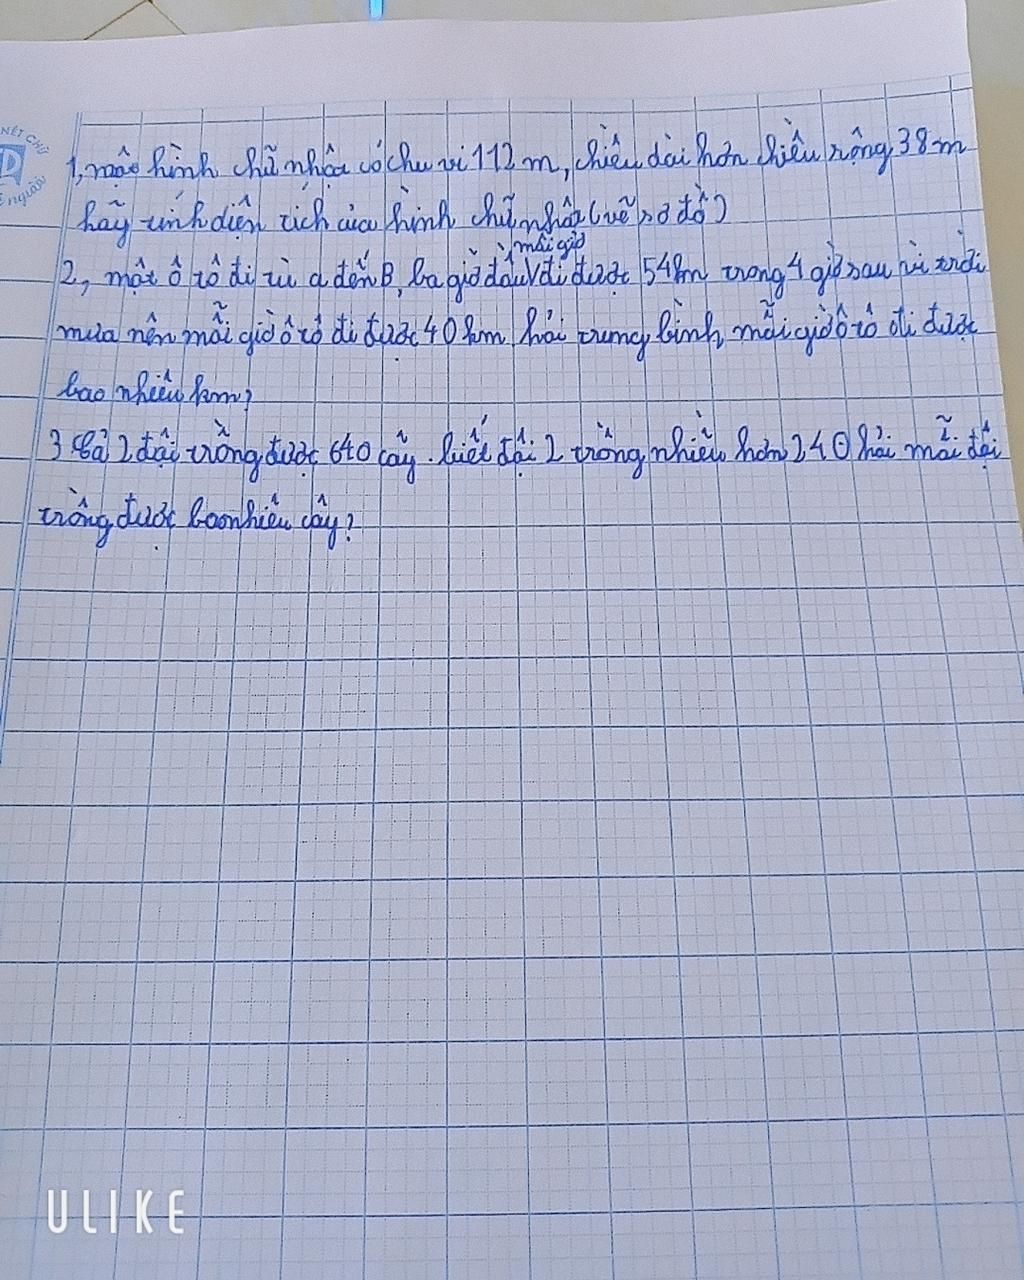 NÉT CHỮ
người
1, một hình chữ nhật có chu vi 112 m, chiều dài hơn chiều rộng 38 m
hãy tính diện tích của hình chữ nhật (vẽ sơ đồ)
mỗi giờ
2, một ô tô đi từ a đến B, ba giờ đầu V đi được 54 km trong 4 giờ sau vì trời
mưa nên mỗi giờ ô tô đi được 40 km hỏi trung bình mỗi giờ ô tô đi được
bao nhiêu km?
3 Cả 2 đội trồng được 640 cây. biết đội 2 trồng nhiều hơn 240 hỏi mỗi đội
trồng được bao nhiêu cây?
ULIKE